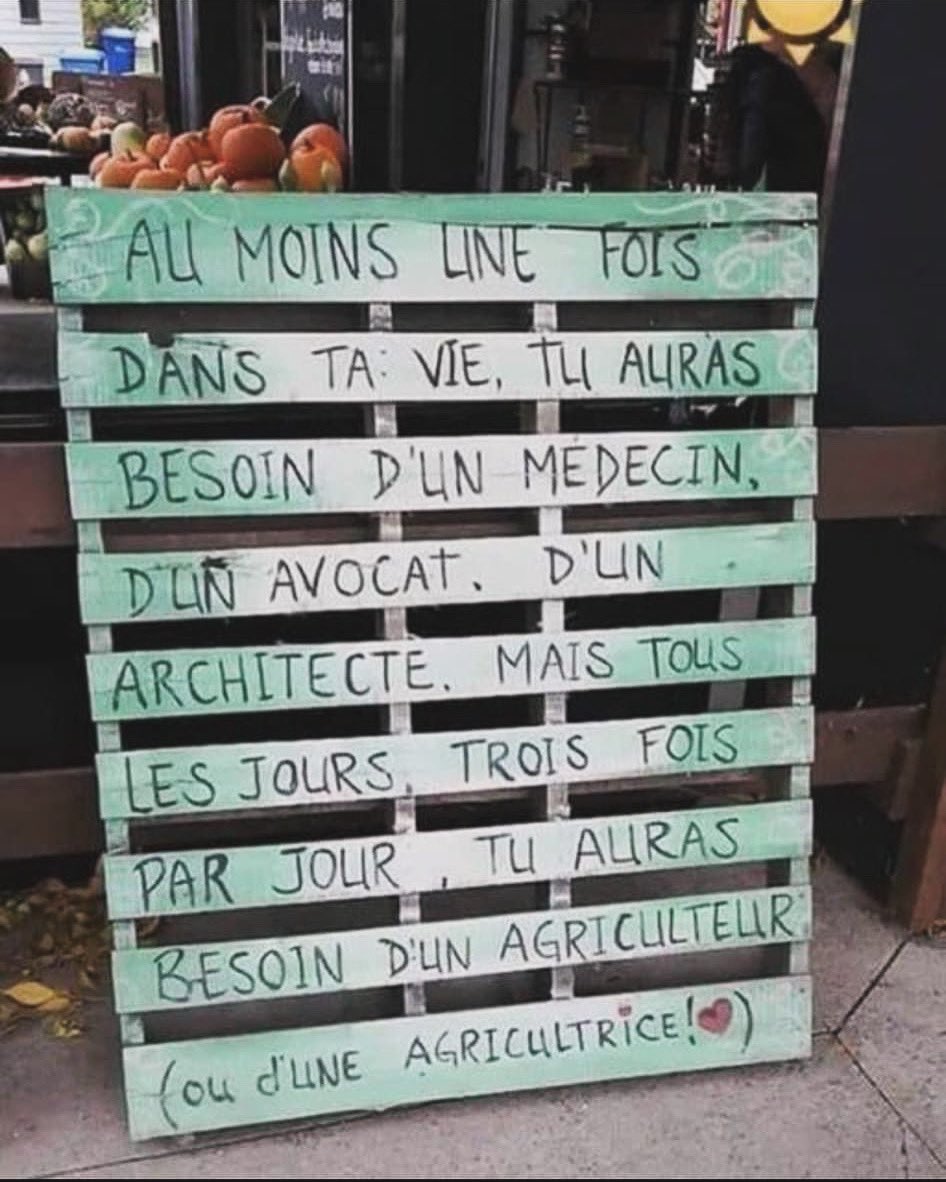 AU MOINS UNE FOIS
DANS TA VIE, TU AURAS
BESOIN D'UN MÉDECIN,
D'UN AVOCAT, D'UN
ARCHITECTE. MAIS TOUS
LES JOURS, TROIS FOIS
PAR JOUR, TU AURAS
BESOIN D'UN AGRICULTEUR
(ou d'UNE AGRICULTRiCE!❤)